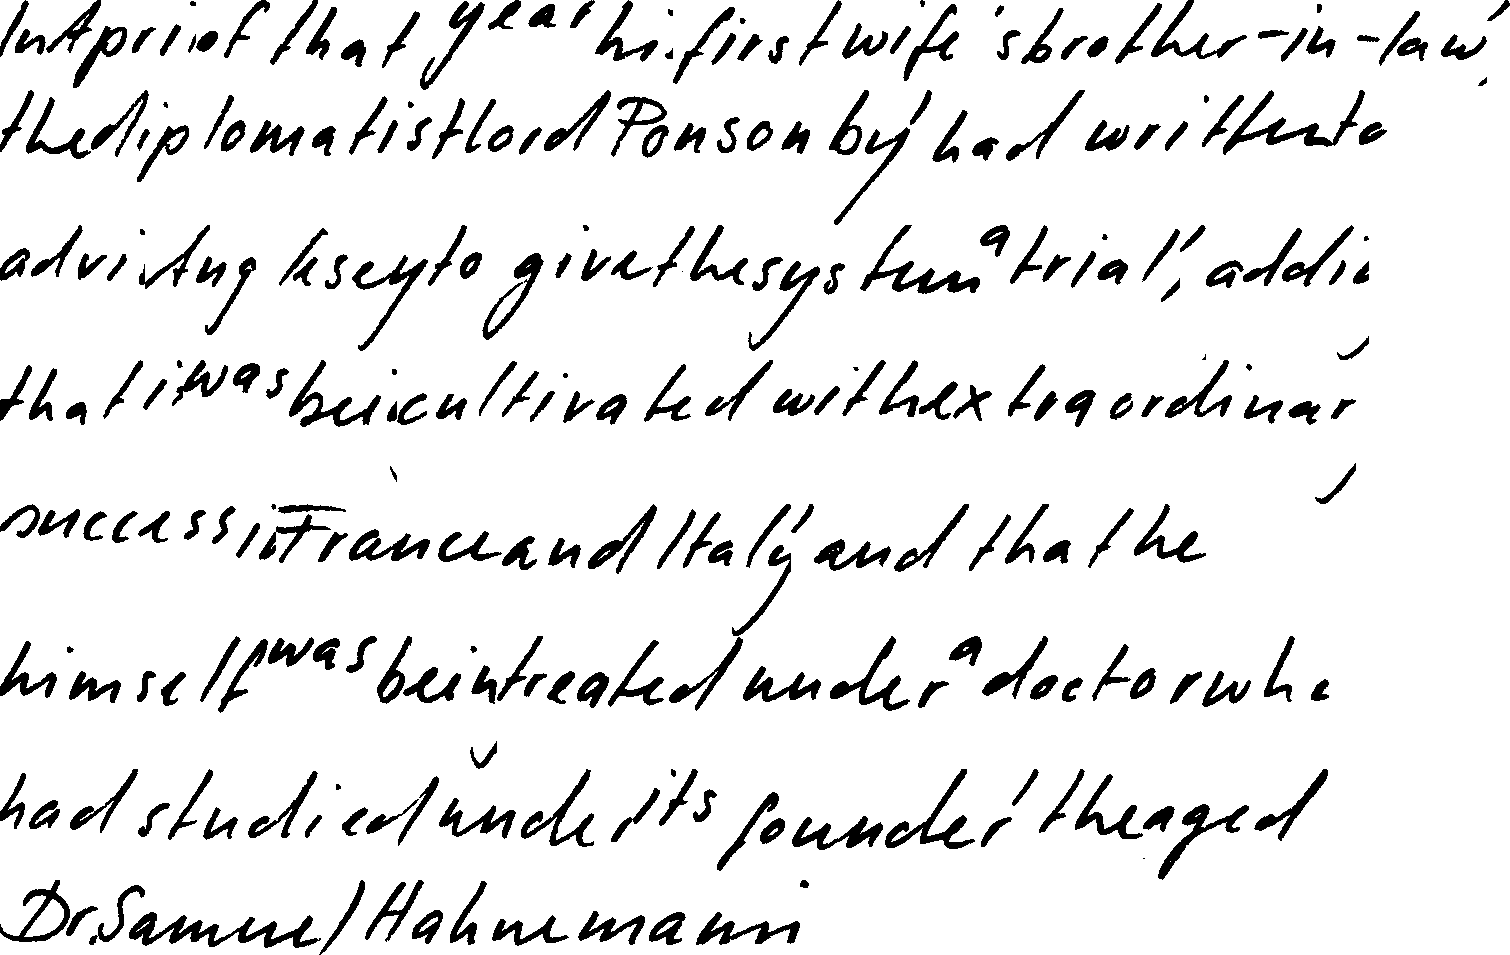 In April of that year his first wife's brother-in-law,
the diplomatist Lord Ponsonby had written to
advising to give the system a trial', adding
that it was being cultivated with extraordinary
success in France and Italy and that he
himself was being treated under a doctor who
had studied under its founder the aged
Dr. Samuel Hahnemann